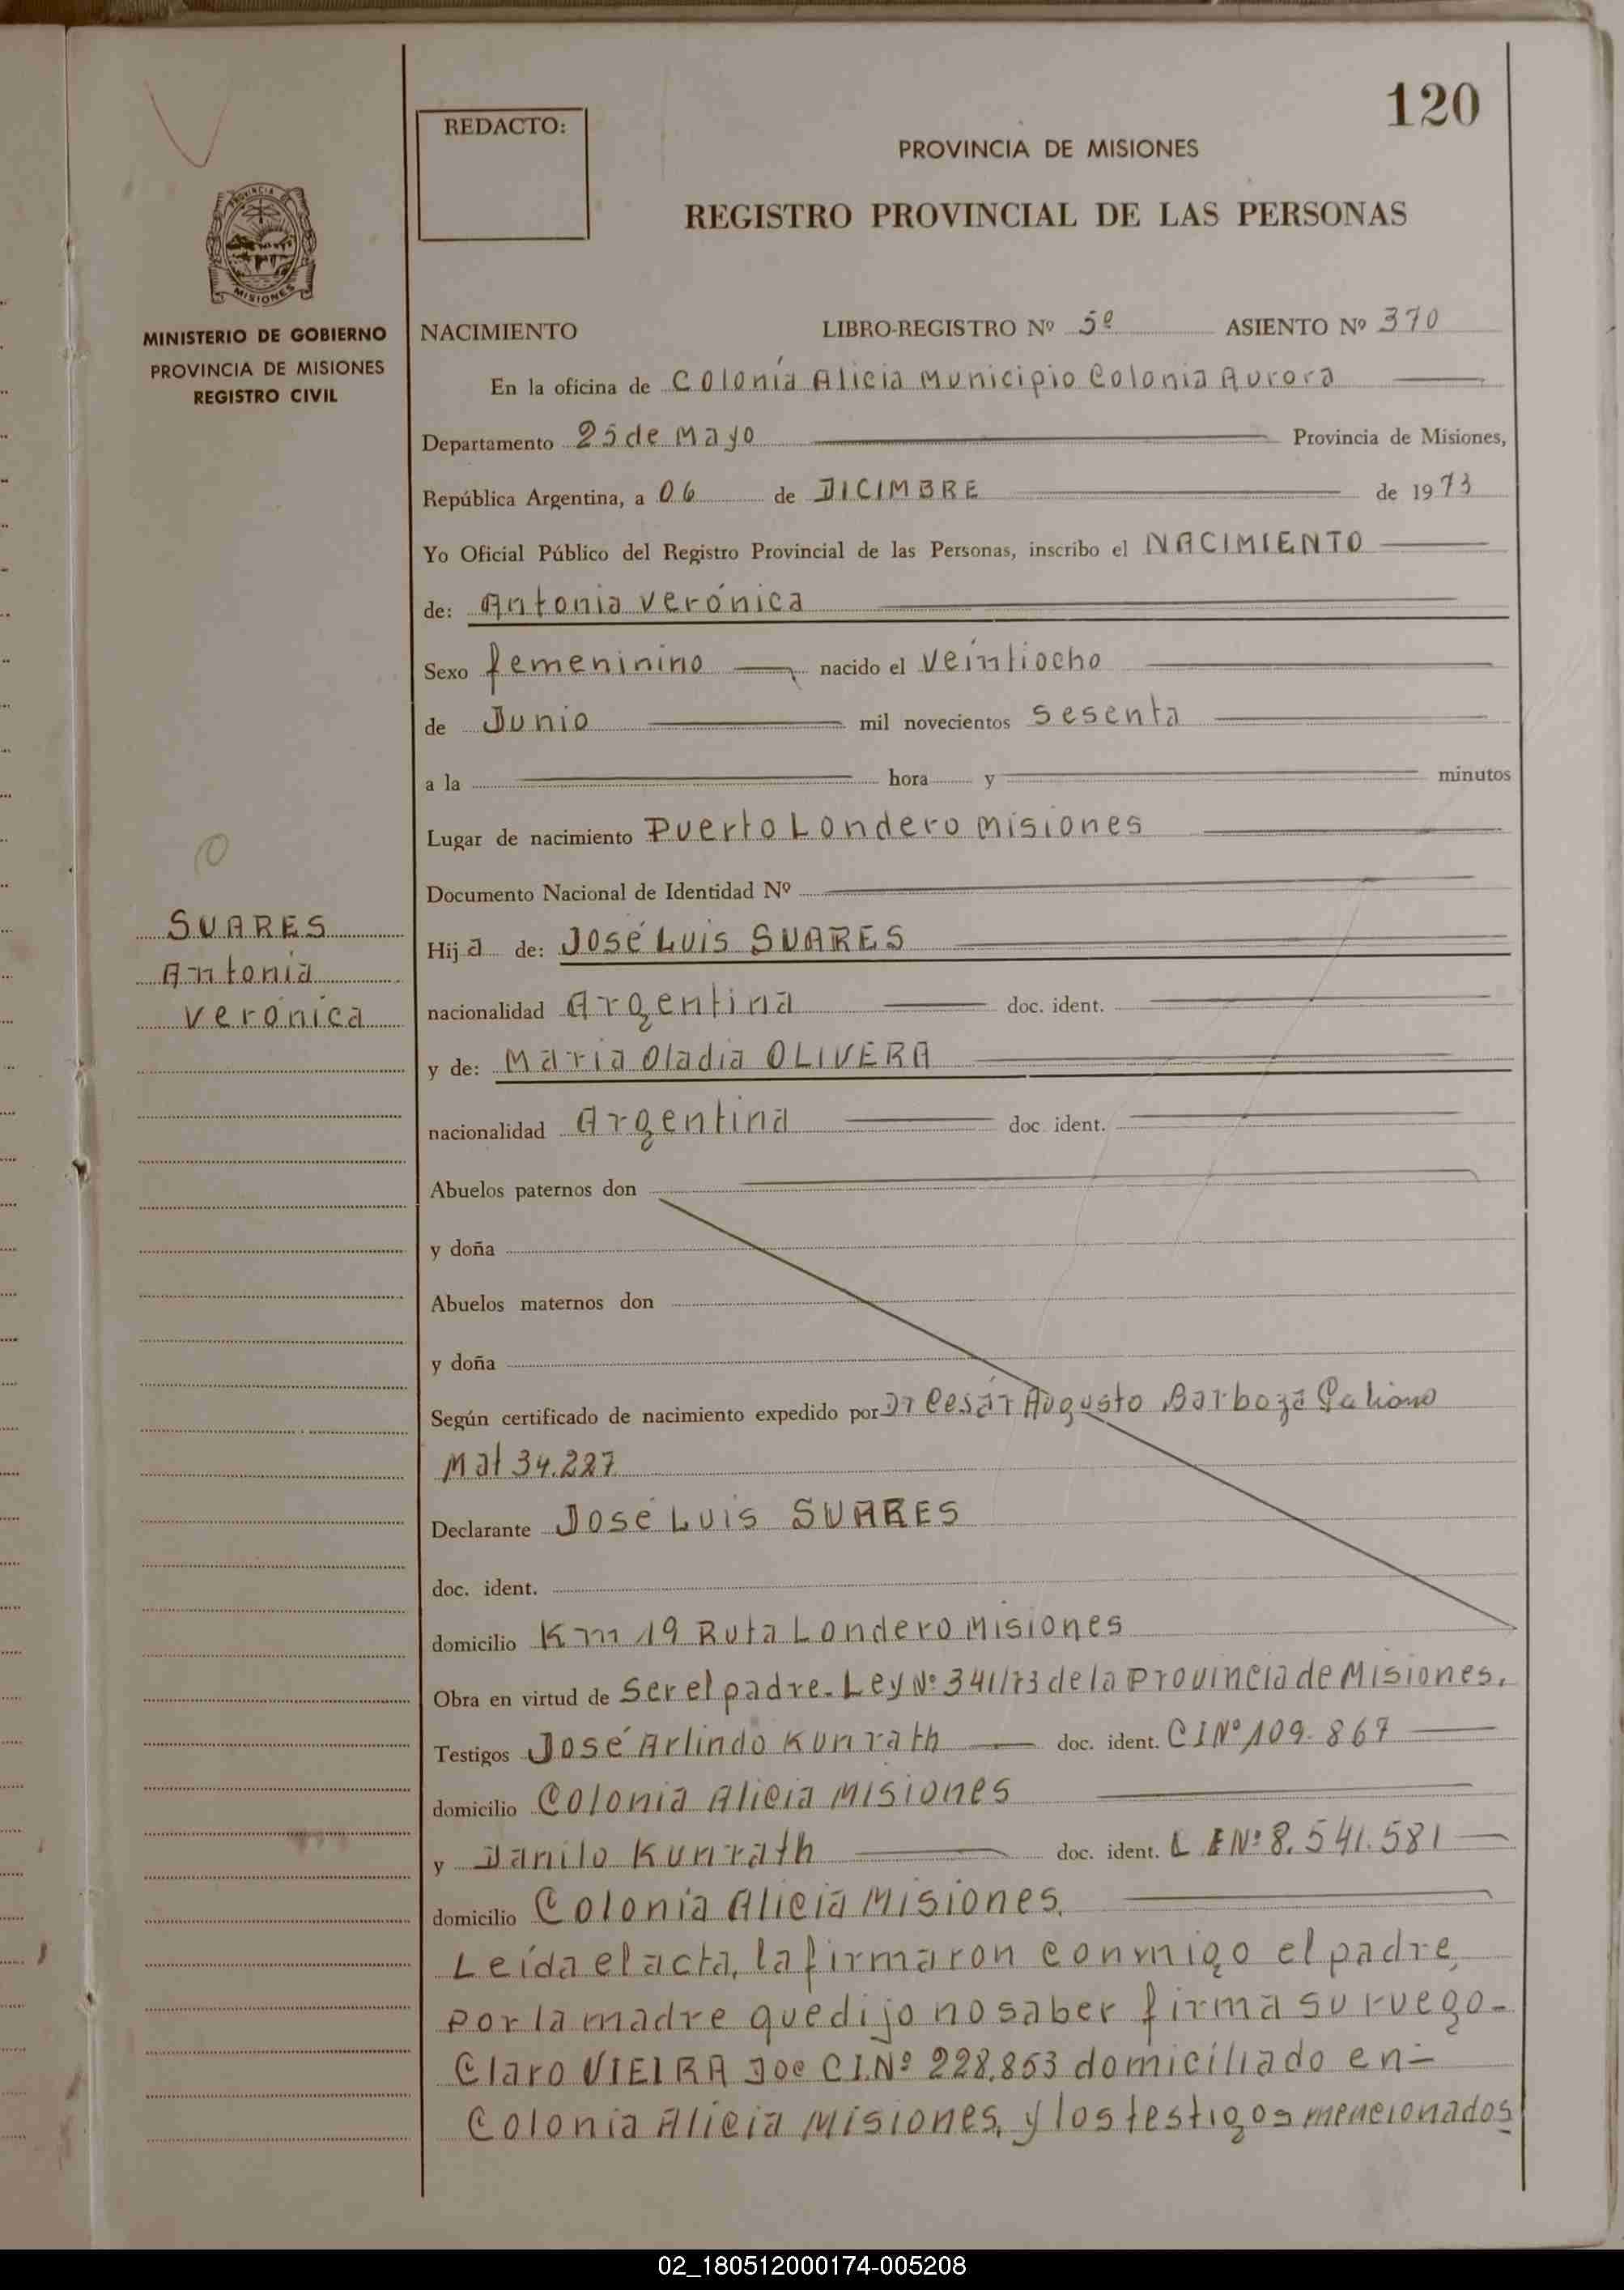 120
REDACTO:
PROVINCIA DE MISIONES
REGISTRO PROVINCIAL DE LAS PERSONAS
PROVINCIA DE
MISIONES
MINISTERIO DE GOBIERNO
PROVINCIA DE MISIONES
REGISTRO CIVIL
NACIMIENTO LIBRO-REGISTRO Nº 5º ASIENTO Nº 370
En la oficina de Colonia Alicia Municipio Colonia Aurora
Departamento 25 de Mayo Provincia de Misiones,
República Argentina, a 06 de DICIMBRE de 1973
Yo Oficial Público del Registro Provincial de las Personas, inscribo el NACIMIENTO
de: Antonia Verónica
Sexo femeninino nacido el veintiocho
de Junio mil novecientos sesenta
a la hora y minutos
Lugar de nacimiento Puerto Londero Misiones
Documento Nacional de Identidad Nº
SUARES
Antonia
Verónica
Hija de: José Luis SUARES
nacionalidad Argentina doc. ident.
y de: Maria Oladia OLIVERA
nacionalidad Argentina doc ident.
Abuelos paternos don
y doña
Abuelos maternos don
y doña
Según certificado de nacimiento expedido por Dr Cesár Augusto Barboza
Mat 34.227
Declarante José Luis SUARES
doc. ident.
domicilio Km 19 Ruta Londero Misiones
Obra en virtud de Ser el padre. Ley Nº 341/73 de la Provincia de Misiones.
Testigos José Arlindo Kunrath doc. ident. CI Nº 109.867
domicilio Colonia Alicia Misiones
y Danilo Kunrath doc. ident. L E Nº 8.541.581
domicilio Colonia Alicia Misiones.
Leída el acta, la firmaron conmigo el padre,
por la madre que dijo no saber firma su ruego-
Claro VIEIRA Doc C.I.Nº 228.853 domiciliado en-
Colonia Alicia Misiones, y los testigos mencionados
02_180512000174-005208